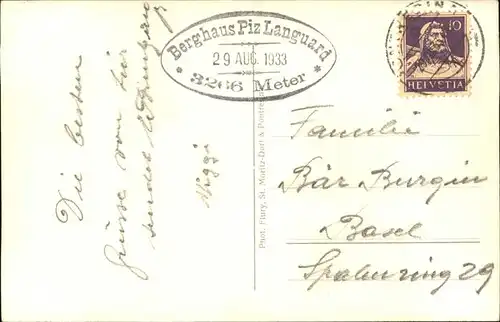 Berghaus Piz Languard
29 AUG. 1933
* 3266 Meter *
10
HELVETIA
Die besten
Grüsse von hier
sendet
Familie
Bär Burgin
Basel
Spalenring 29
Phot. Flury, St. Moritz-Dorf & Pontresina